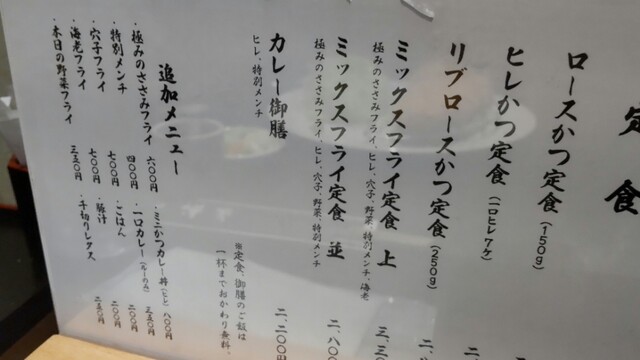 定食
ロースかつ定食(150g)
ヒレかつ定食(一口ヒレ7ヶ) 二、
リブロースかつ定食(250g) 二、八
ミックスフライ定食 上 三、三
極みのささみフライ、ヒレ、穴子、野菜、特別メンチ、海老
ミックスフライ定食 並 二、八〇
極みのささみフライ、ヒレ、穴子、野菜、特別メンチ
カレー御膳 二、二〇〇円
ヒレ、特別メンチ
※定食、御膳のご飯は
一杯までおかわり無料。
追加メニュー
・極みのささみフライ 六〇〇円
・特別メンチ 四〇〇円
・穴子フライ 七〇〇円
・海老フライ 七〇〇円
・本日の野菜フライ 三五〇円
・ミニかつカレー丼(ヒレ) 八〇〇円
・一口カレー(ルーのみ) 三五〇円
・ごはん 二〇〇円
・豚汁 二〇〇円
・千切りレタス 二五〇円